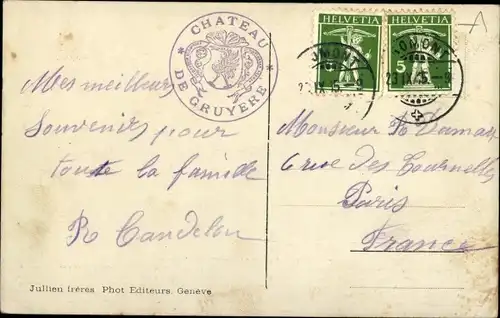 * CHATEAU *
DE GRUYERE
HELVETIA HELVETIA
5
Mes meilleurs
Souvenirs pour
toute la famille
R Candelon
Monsieur
6 rue des Tournelles
Paris
France
Jullien frères Phot Editeurs. Genève